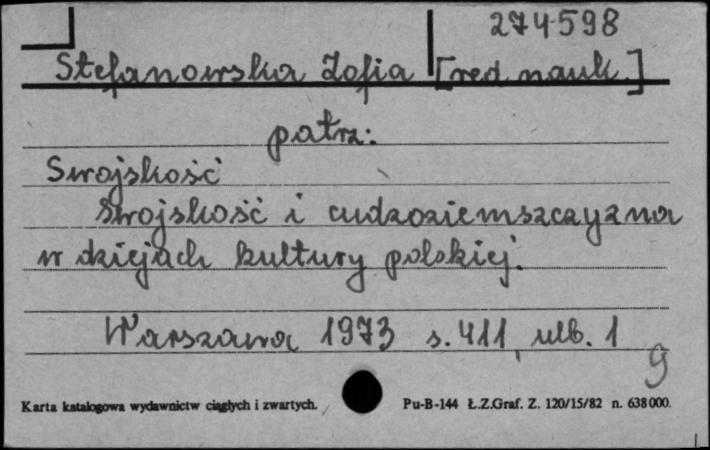 274598
Stefanowska Zofia [red. nauk.]
patrz:
Swojskość
Swojskość i cudzoziemszczyzna
w dziejach kultury polskiej.
Warszawa 1973 s. 411, ulb. 1
g
Karta katalogowa wydawnictw ciągłych i zwartych. Pu-B-144 Ł.Z.Graf. Z. 120/15/82 n. 638 000.